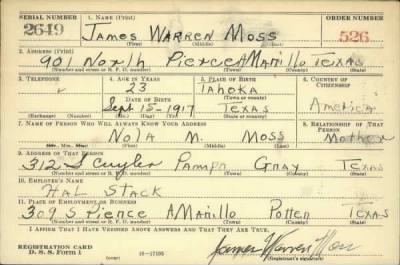 SERIAL NUMBER 1. NAME (Print) ORDER NUMBER
2649 JAMES WARREN MOSS 526
(First) (Middle) (Last)
2. ADDRESS (Print)
901 North Pierce AMArillo TEXAS
(Number and street or R. F. D. number) (Town) (County) (State)
3. TELEPHONE 4. AGE IN YEARS 5. PLACE OF BIRTH 6. COUNTRY OF CITIZENSHIP
23 TAhOKA
DATE OF BIRTH (Town or county)
Sept 18-1917 TEXAS AmericA
(Exchange) (Number) (Mo.) (Day) (Yr.) (State or country)
7. NAME OF PERSON WHO WILL ALWAYS KNOW YOUR ADDRESS 8. RELATIONSHIP OF THAT PERSON
NolA M. MOSS Mother
(Mr., Mrs., Miss) (First) (Middle) (Last)
9. ADDRESS OF THAT PERSON
312 S Cuyler PAmpA GrAy TEXAS
(Number and street or R. F. D. number) (Town) (County) (State)
10. EMPLOYER'S NAME
HAL STACK
11. PLACE OF EMPLOYMENT OR BUSINESS
309 S Pierce AMArillo Potter TEXAS
(Number and street or R. F. D. number) (Town) (County) (State)
I AFFIRM THAT I HAVE VERIFIED ABOVE ANSWERS AND THAT THEY ARE TRUE.
REGISTRATION CARD James Warren Moss
D. S. S. Form 1 (Registrant's signature)